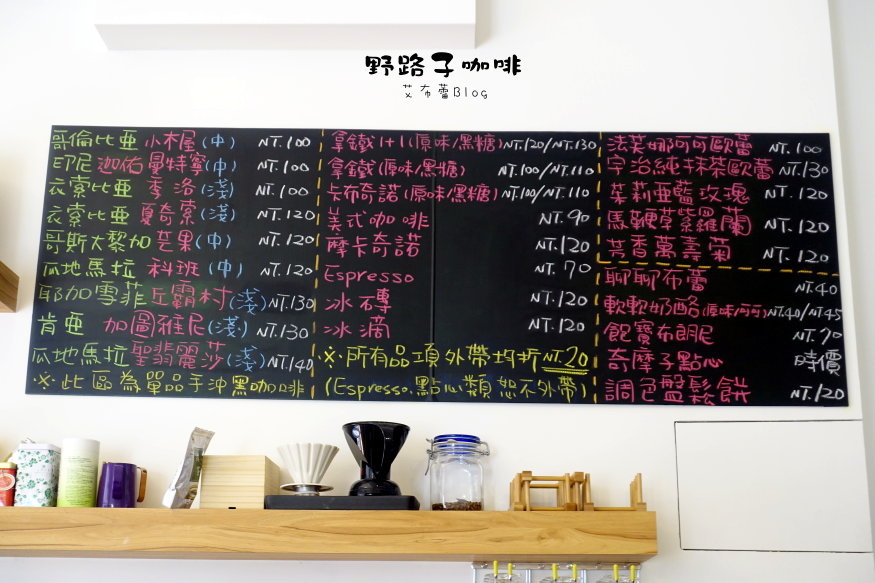 野路子咖啡
艾布蕾Blog
哥倫比亞 小木屋(中) NT.100
印尼 迦佑曼特寧(中) NT.100
衣索比亞 季洛(淺) NT.100
衣索比亞 夏奇索(淺) NT.120
哥斯大黎加 芒果(中) NT.120
瓜地馬拉 科班(中) NT.120
耶加雪菲 丘霸村(淺) NT.130
肯亞 加圖雅尼(淺) NT.130
瓜地馬拉 聖翡麗莎(淺) NT.140
※此區為單品手沖黑咖啡
拿鐵1+1(原味/黑糖) NT.120/NT.130
拿鐵(原味/黑糖) NT.100/NT.110
卡布奇諾(原味/黑糖) NT.100/NT.110
美式咖啡 NT.90
摩卡奇諾 NT.120
Espresso NT.70
冰磚 NT.120
冰滴 NT.120
※所有品項外帶均折NT.20
(Espresso.點心類恕不外帶)
法芙娜可可歐蕾 NT.100
宇治純抹茶歐蕾 NT.130
茱莉亞藍玫瑰 NT.120
馬鞭草紫羅蘭 NT.120
芳香萬壽菊 NT.120
聊聊布蕾 NT.40
軟軟奶酪(原味/可可) NT.40/NT.45
飽寶布朗尼 NT.70
奇摩子點心 時價
調色盤鬆餅 NT.120